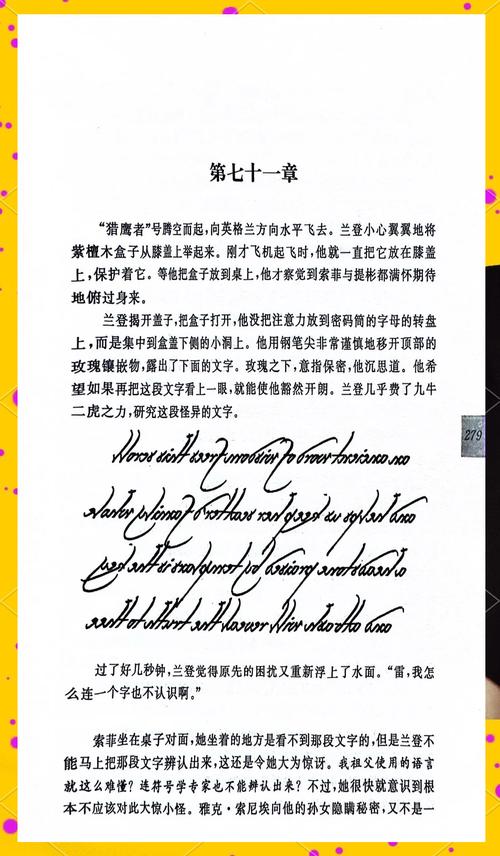 第七十一章
“猎鹰者”号腾空而起，向英格兰方向水平飞去。兰登小心翼翼地将
紫檀木盒子从膝盖上举起来。刚才飞机起飞时，他就一直把它放在膝盖
上，保护着它。等他把盒子放到桌上，他才察觉到索菲与提彬都满怀期待
地俯过身来。
兰登揭开盖子，把盒子打开，他没把注意力放到密码筒的字母的转盘
上，而是集中到盒盖下侧的小洞上。他用钢笔尖非常谨慎地移开顶部的
玫瑰镶嵌物，露出了下面的文字。玫瑰之下，意指保密，他沉思道。他希
望如果再把这段文字看上一眼，就能使他豁然开朗。兰登几乎费了九牛
二虎之力，研究这段怪异的文字。
279
过了好几秒钟，兰登觉得原先的困扰又重新浮上了水面。“雷，我怎
么连一个字也不认识啊。”
索菲坐在桌子对面，她坐着的地方是看不到那段文字的，但是兰登不
能马上把那段文字辨认出来，这还是令她大为惊讶。我祖父使用的语言
就这么难懂？连符号学专家也不能辨认出来？不过，她很快就意识到根
本不应该对此大惊小怪。雅克·索尼埃向他的孙女隐瞒秘密，又不是一